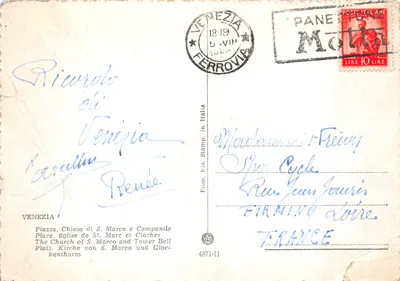 VENEZIA
18 19
FERROVIA
Motta
POSTE ITALIANE
LIRE 10 LIRE
Ricordo
di
Venezia
Renée
VENEZIA
Piazza, Chiesa di S. Marco e Campanile
Place, Eglise de St. Marc et Clocher
The Church of S. Marco and Tower Bell
Platz, Kirche von S. Marco und Gloc-
kenthurms
Prop. Ris. Stamp. in Italia
4871-11
Cycle
Rue Jean Jaurès
FIRMINY Loire
FRANCE